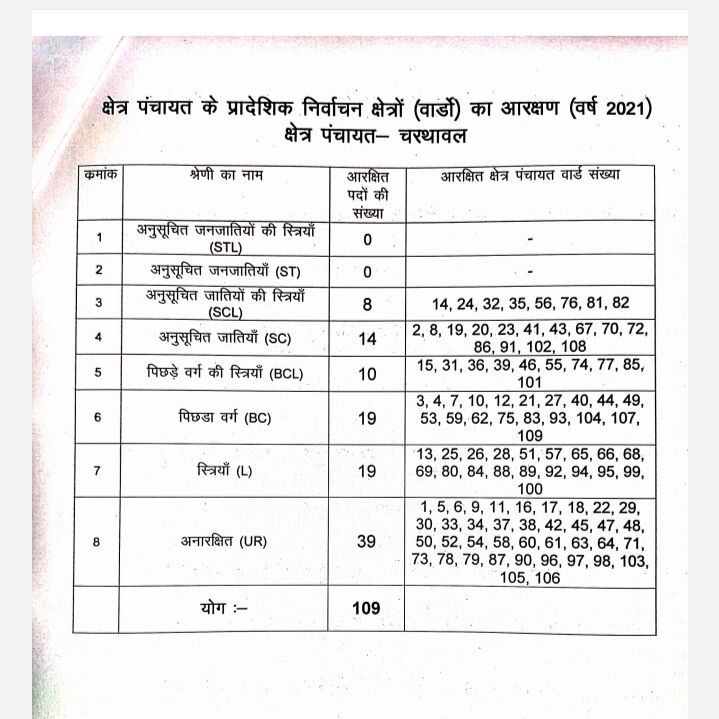 क्षेत्र पंचायत के प्रादेशिक निर्वाचन क्षेत्रों (वार्डो) का आरक्षण (वर्ष 2021)
क्षेत्र पंचायत– चरथावल
क्रमांक श्रेणी का नाम आरक्षित पदों की संख्या आरक्षित क्षेत्र पंचायत वार्ड संख्या
1 अनुसूचित जनजातियों की स्त्रियाँ (STL) 0 -
2 अनुसूचित जनजातियाँ (ST) 0 -
3 अनुसूचित जातियों की स्त्रियाँ (SCL) 8 14, 24, 32, 35, 56, 76, 81, 82
4 अनुसूचित जातियाँ (SC) 14 2, 8, 19, 20, 23, 41, 43, 67, 70, 72,
86, 91, 102, 108
5 पिछड़े वर्ग की स्त्रियाँ (BCL) 10 15, 31, 36, 39, 46, 55, 74, 77, 85,
101
6 पिछडा वर्ग (BC) 19 3, 4, 7, 10, 12, 21, 27, 40, 44, 49,
53, 59, 62, 75, 83, 93, 104, 107,
109
7 स्त्रियाँ (L) 19 13, 25, 26, 28, 51, 57, 65, 66, 68,
69, 80, 84, 88, 89, 92, 94, 95, 99,
100
8 अनारक्षित (UR) 39 1, 5, 6, 9, 11, 16, 17, 18, 22, 29,
30, 33, 34, 37, 38, 42, 45, 47, 48,
50, 52, 54, 58, 60, 61, 63, 64, 71,
73, 78, 79, 87, 90, 96, 97, 98, 103,
105, 106
योग :– 109